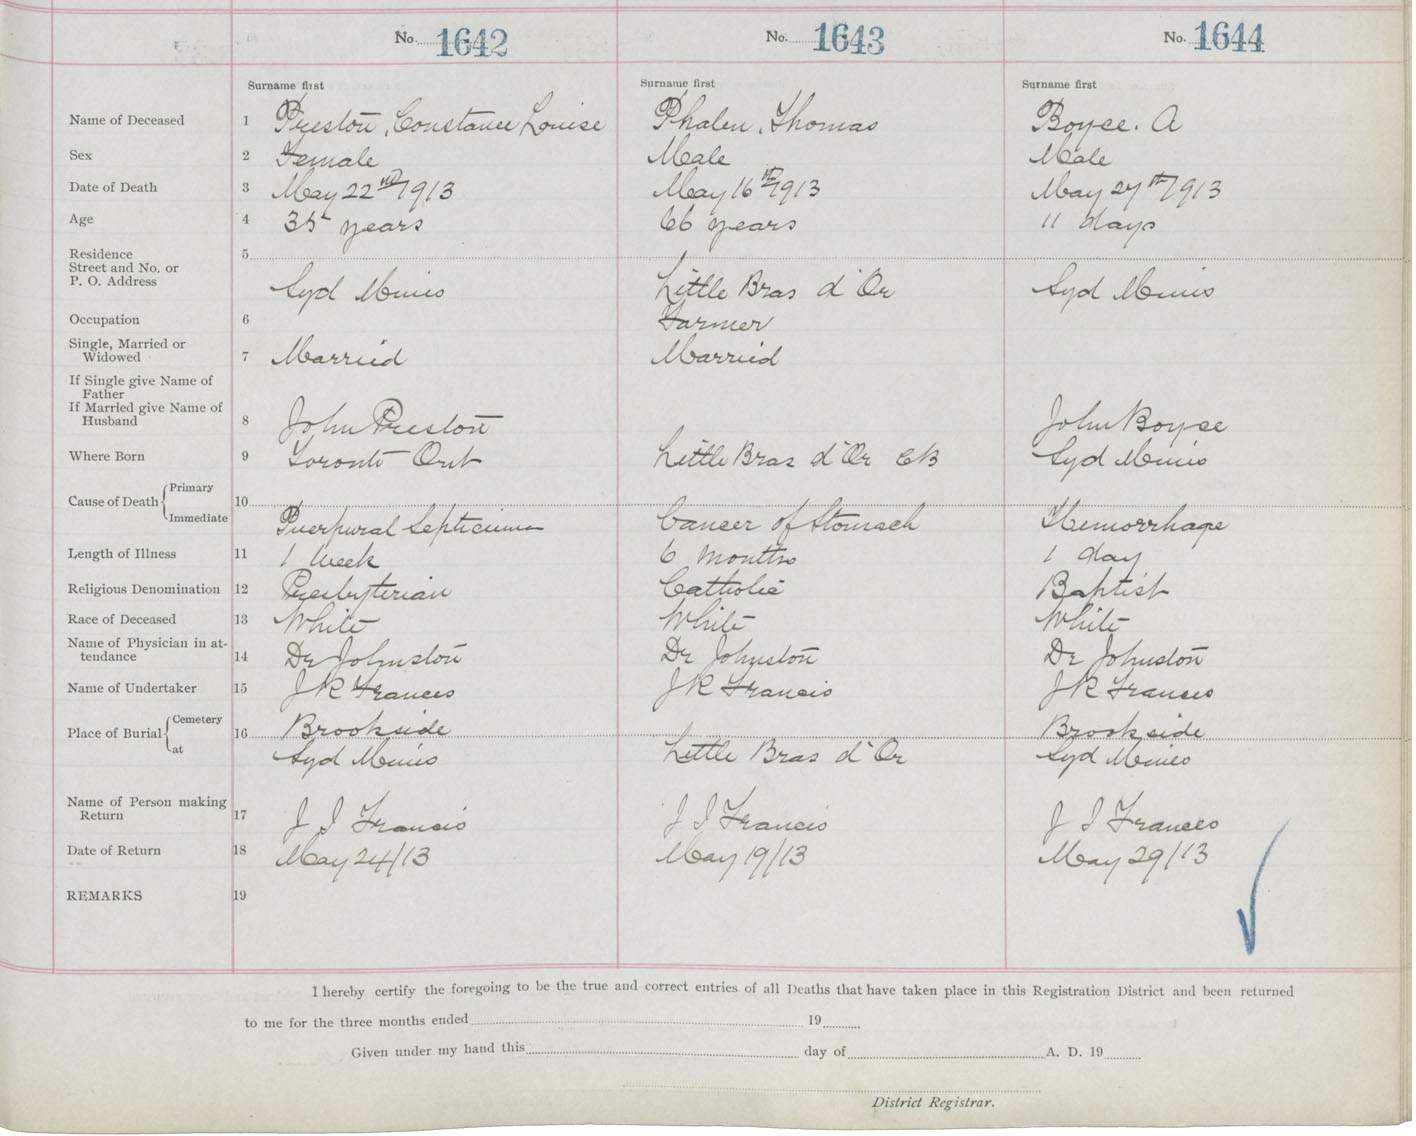 No. 1642 No. 1643 No. 1644
Surname first Surname first Surname first
Name of Deceased 1 Preston, Constance Louise Phalen, Thomas Boyce. A
Sex 2 Female Male Male
Date of Death 3 May 22nd 1913 May 16th 1913 May 27th 1913
Age 4 35 years 66 years 11 days
Residence 5
Street and No. or
P. O. Address Syd Mines Little Bras d'Or Syd Mines
Occupation 6 Farmer
Single, Married or
Widowed 7 Married Married
If Single give Name of
Father
If Married give Name of
Husband 8 John Preston John Boyce
Where Born 9 Toronto Ont Little Bras d'Or CB Syd Mines
Cause of Death { Primary 10
Immediate Puerpural Septicimia Cancer of Stomach Hemorrhage
Length of Illness 11 1 week 6 months 1 day
Religious Denomination 12 Presbyterian Catholic Baptist
Race of Deceased 13 White White White
Name of Physician in at-
tendance 14 Dr Johnston Dr Johnston Dr Johnston
Name of Undertaker 15 J R Francis J R Francis J R Francis
Place of Burial { Cemetery 16 Brookside Brookside
at Syd Mines Little Bras d'Or Syd Mines
Name of Person making
Return 17 J I Francis J I Francis J I Francis
Date of Return 18 May 24/13 May 19/13 May 29/13
REMARKS 19
I hereby certify the foregoing to be the true and correct entries of all Deaths that have taken place in this Registration District and been returned
to me for the three months ended 19
Given under my hand this day of A. D. 19
District Registrar.